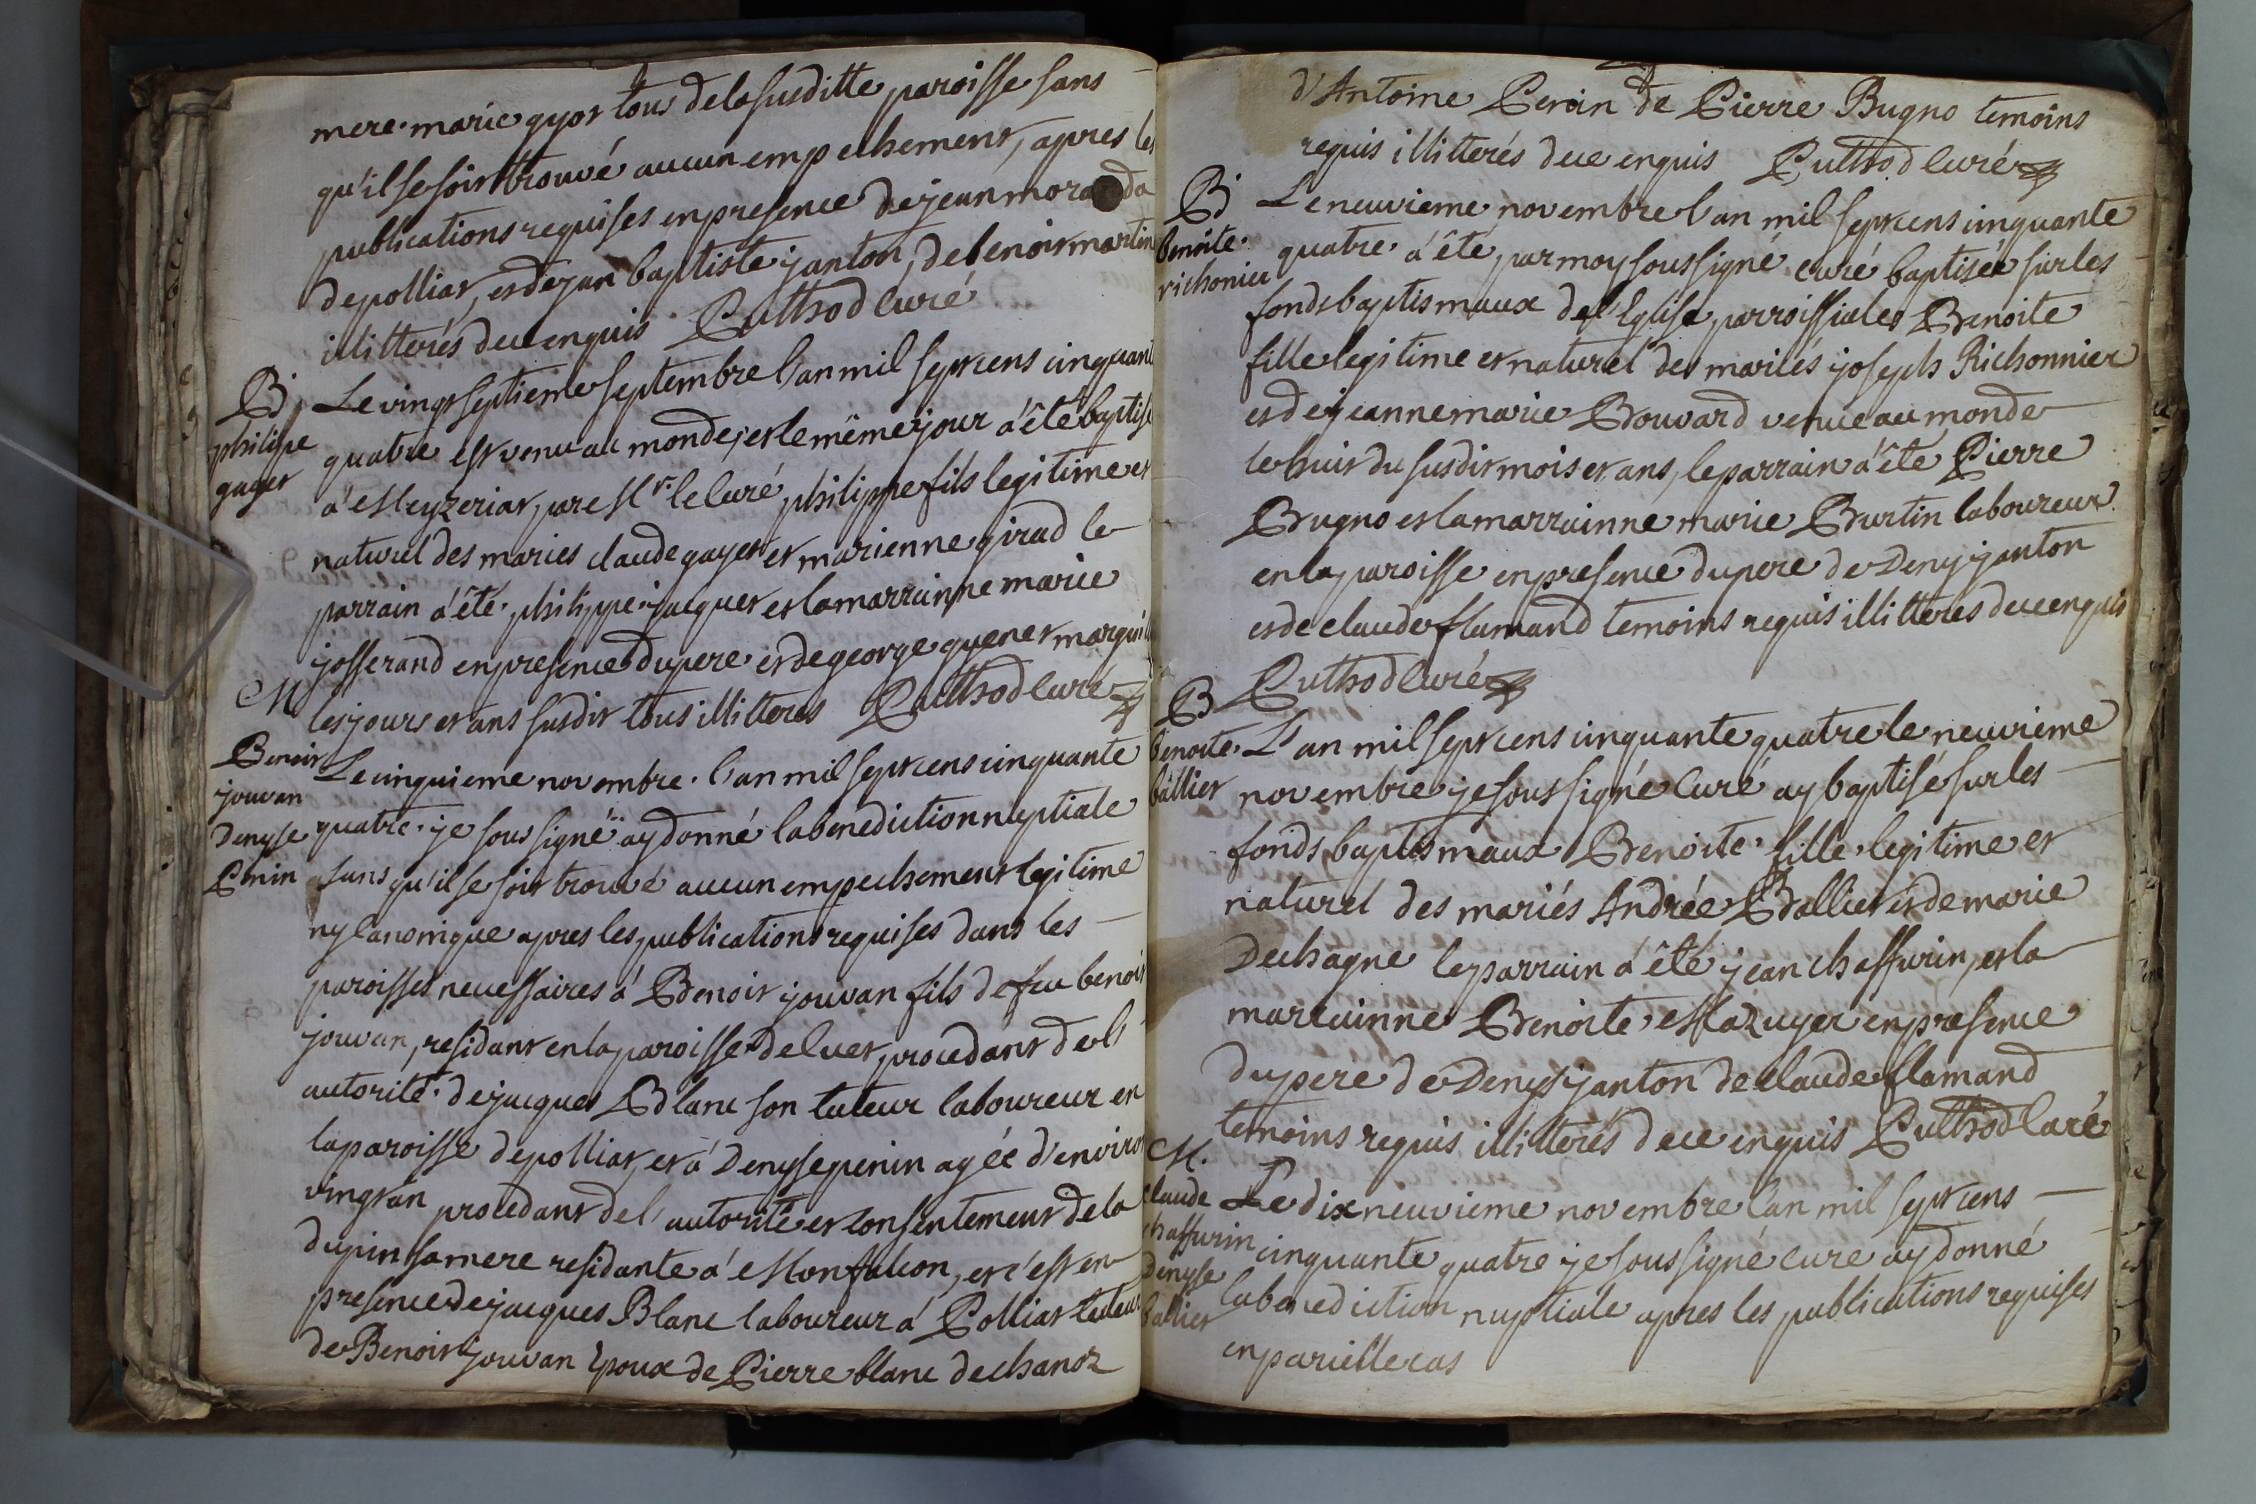 mere marie gyot tous de la susditte paroisse sans
qu'il se soit trouvé aucun empechement, apres les
publications requises en presence de jean mora da
de polliat, et de jan baptiste janton, de benoit martin
illitterés de ce enquis Puthod Curé
B
philippe
gayet
Le vingt septieme septembre l'an mil sept cens cinquante
quatre est venu au monde, et le même jour a été baptisé
a Meyzeriat, par Mr. le Curé philippe fils legitime et
naturel des maries claude gayet et marienne girad le
parrain a été philippe jacquet et la marrainne marie
josserand en presence du pere et de george guenet
les jours et ans susdit tous illitteres Puthod Curé
M
Benoit
jouvan
Denyse
Penin
Le cinquieme novembre l'an mil sept cens cinquante
quatre je sous signé ay donné la benediction nuptiale
sans qu'il se soit trouvé aucun empechement legitime
ny canonique apres les publications requises dans les
paroisses necessaires a Benoit jouvan fils de feu benoit
jouvan, residant en la paroisse de luet, procedant de l'
autorité de jacques Blanc son tuteur laboureur en
la paroisse de polliat, et a Denyse penin agée d'environ
vingt an procedant de l'autorité et consentement de la
dupin sa mere residante a Monfalcon, et c'est en
presence de jacques Blanc laboureur a Polliat tuteur
de Benoit jouvan Epoux de Pierre blanc de chanoz
d'Antoine Perin de Pierre Bugno temoins
requis illitterés de ce enquis Puthod Curé
B
benoite
richonier
Le neuvieme novembre l'an mil sept cens cinquante
quatre a été par moy soussigné curé baptisée sur les
fonds baptismaux de l'Eglise parroissiales Benoite
fille legitime et naturel des mariés joseph Richonnier
et de jeanne marie Bouvard venue au monde
le huit du susdit mois et ans, le parrain a été Pierre
Bugno et la marrainne marie Burtin laboureux
en la paroisse en presence du pere de Deny janton
et de claude flamand temoins requis illitteres de ce enquis
Puthod Curé
B
benoite
ballier
L'an mil sept cens cinquante quatre le neuvieme
novembre je sous signé Curé ay baptisé sur les
fonds baptismaux Benoite fille legitime et
naturel des mariés Andrée Ballier et de marie
Dechagne le parrain a été jean chaffurin, et la
marrainne Benoite Mazuyer en presence
du pere de Denys janton de claude flamand
temoins requis illitterés de ce enquis Puthod Curé
M.
claude
chaffurin
Denyse
ballier
Le dix neuvieme novembre l'an mil sept cens
cinquante quatre je sous signé cure ay donné
la benediction nuptiale apres les publications requises
en parielle cas